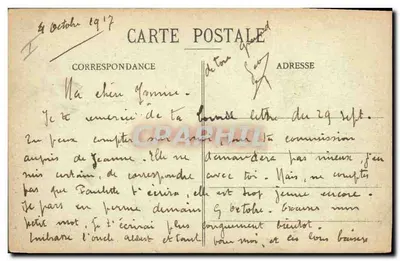 4 Octobre 1917
I
CARTE POSTALE
CORRESPONDANCE
ADRESSE
de ton grand
Ma chère Yvonne.
Je te remercie de ta bonne lettre du 29 sept.
Tu peux compter sur moi pour ta commission
auprès de Jeanne. Elle ne demandera pas mieux, j'en
suis certain, de correspondre avec toi. Mais, ne comptes
pas que Paulette t'écrira, elle est trop jeune encore.
Je pars en perme demain 5 octobre. Excuses mon
petit mot, je t'écrirai plus longuement bientôt.
Embrasse l'oncle et pour moi, et les bons baisers
CPARAMA